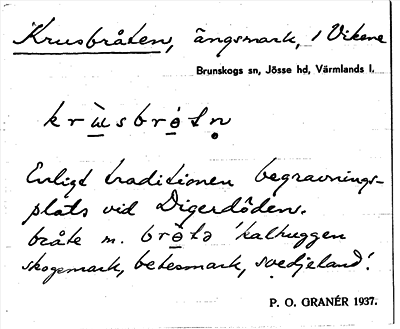 Krusbråten, ängsmark, i Vikene
Brunskogs sn, Jösse hd, Värmlands l.
krùsbrótn̥
Enligt traditionen begravnings-
plats vid Digerdöden.
bråte m. brò̱tə 'kalhuggen
skogsmark, betesmark, svedjeland'.
P. O. GRANÉR 1937.